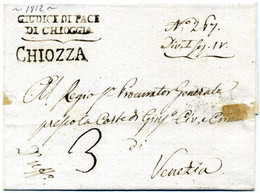 ~ 1812 ~
GIUDICE DI PACE
DI CHIOGGIA
CHIOZZA
N.º 267.
Divis.e Seg. IV.
Al Regio Sr. Procurator Generale
presso la Corte di Giusz. Civ. e Crim.
di
Venezia
3